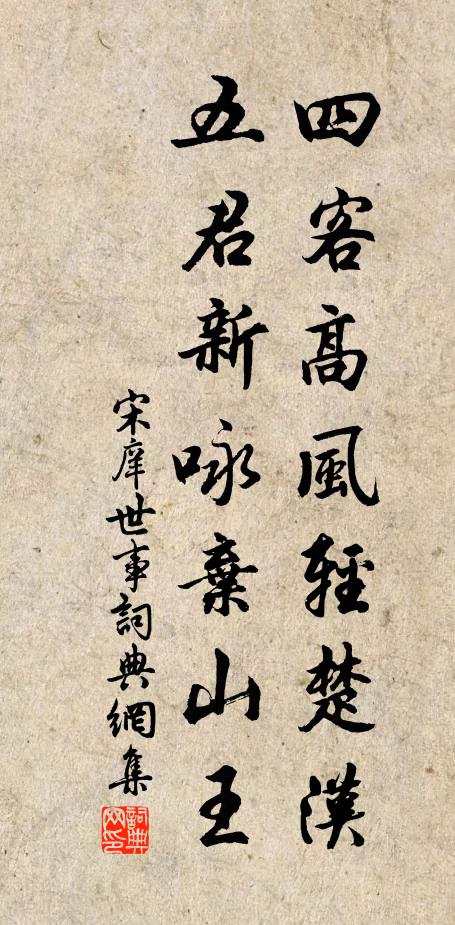 四客高風輕楚漢
五君新咏棄山王
宋庠世事詞典網集
詞典網印